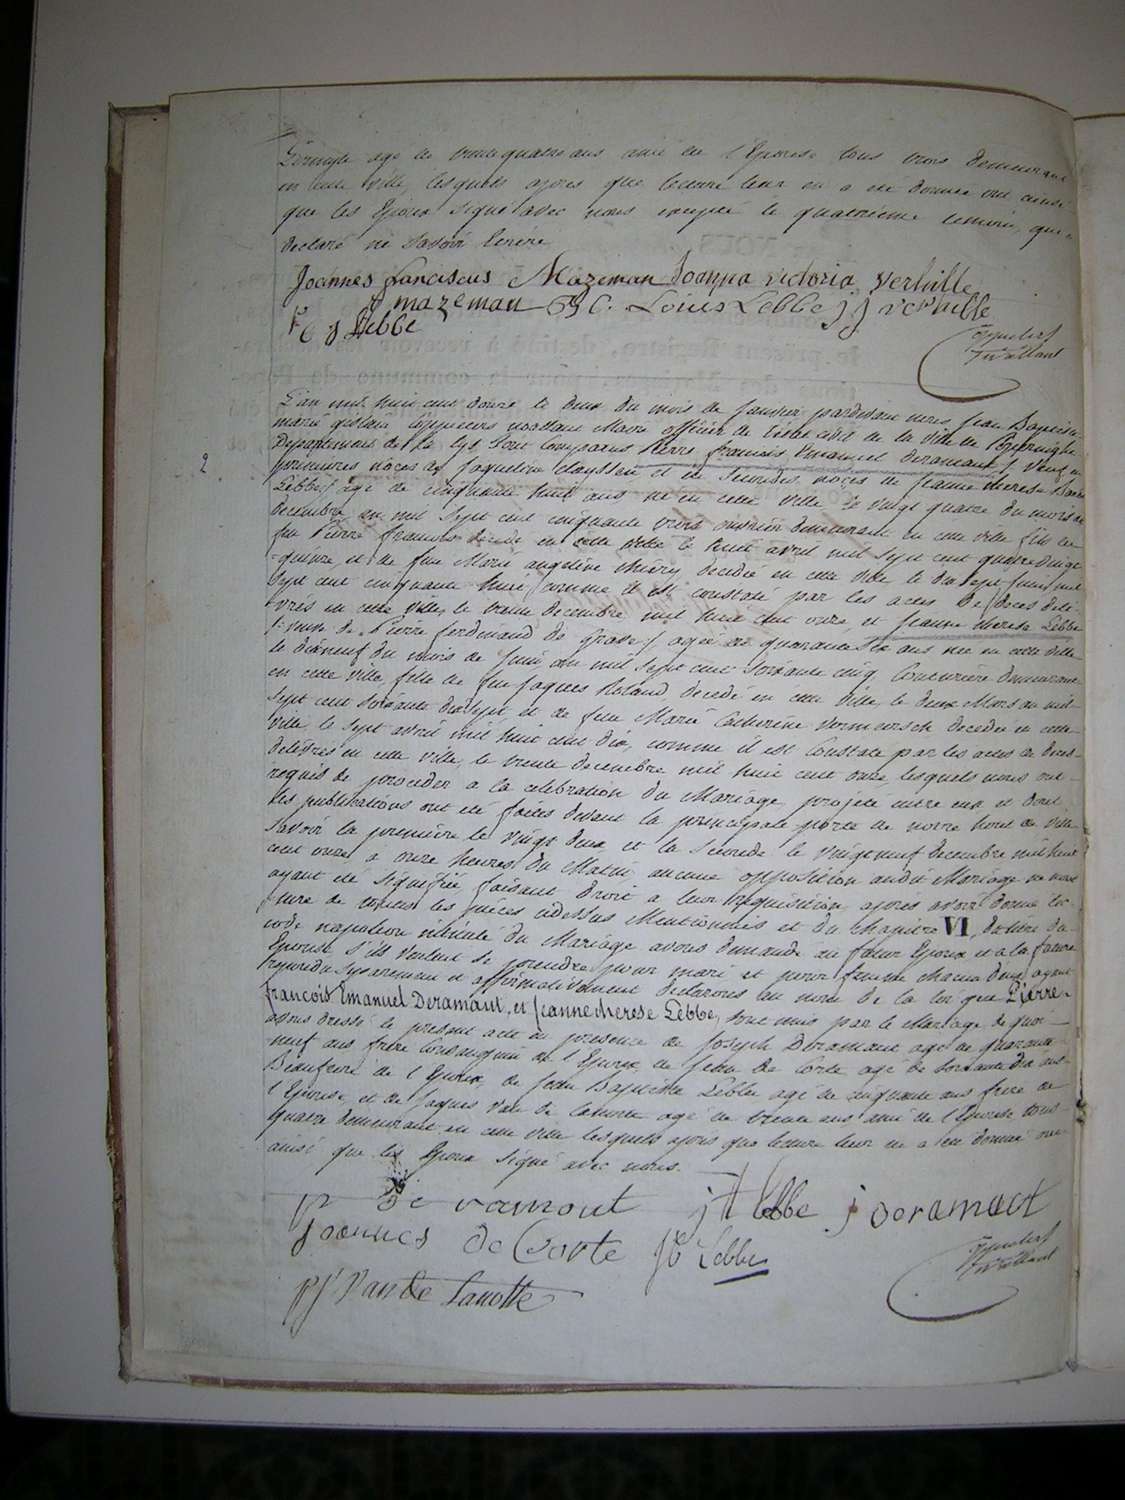 agé de trente quatre ans ami de l'Epouse tous trois demeurant
en cette ville, lesquels apres que lecture leur en a été donnée ont ainsi
que les Epoux signé avec nous excepté le quatrième temoin, qui a
declaré ne savoir Ecrire
Joannes Franciscus Mazeman Joanna victoria verhille
J mazeman C. Louis Lebbe j j verhille
Lebbe
2
L'an mil huit cent douze le deux du mois de Janvier pardevant nous Jean Baptiste
marie Maire officier de l'état civil de la ville de Poperinghe
Departement de la Lys sont comparus Pierre françois Emanuel Deramaut, veuf en
premieres noces de Jaqueline et de secondes noces de Jeanne therese
Lebbe agé de cinquante huit ans né en cette ville le vingt quatre du mois de
decembre en mil sept cent cinquante trois demeurant en cette ville fils de
feu Pierre francois decedé en cette ville le huit avril mil sept cent quatre vingt
et de feue Marie angeline decedée en cette ville le dix sept juin mil
sept cent cinquante huit, comme il est constaté par les actes de deces deli
vrés en cette ville, le trente decembre mil huit cent onze, et Jeanne therese Lebbe
veuve de Pierre ferdinand de agée de quarante six ans née en cette ville
le dixneuf du mois de Juin an mil sept cent soixante cinq Couturière demeurant
en cette ville, fille de feu Jaques decedé en cette ville, le deux Mars an mil
sept cent soixante dix sept, et de feue Marie Catherine Vermeersch decedée en cette
ville le sept avril mil huit cent dix, comme il est constaté par les actes de deces
delivres en cette ville, le trente decembre mil huit cent onze, lesquels nous ont
requis de proceder a la celebration du Mariage projeté entre eux et dont
les publications ont été faites devant la principale porte de notre hotel de ville
savoir la première le vingt deux et la seconde le vingt neuf decembre mil huit
cent onze a onze heures du Matin aucune opposition audit Mariage ne nous
ayant été signifiée faisant droit a leur requisition, apres avoir donné lec
ture de toutes les pièces cidessus Mentionnées et du chapitre VI, du titre du
code napoleon intitulé du Mariage avons demandé au futur Epoux et a la future
Epouse s'ils veulent se prendre pour mari et pour femme chacun d'eux ayant
repondu separement et affirmativement declarons au nom de la loi que Pierre
françois Emanuel Deramaut, et Jeanne therese Lebbe, sont unis par le Mariage de quoi
avons dressé le present acte en presence de Joseph Deramaut agé de quarante
neuf ans frère de l'Epoux, de Jean de Corte agé de soixante dix ans
Beaufrère de l'Epoux, de Jean Baptiste Lebbe agé de cinquante ans frère de
l'Epouse, et de Jaques Van de Lanotte agé de trente ans ami de l'Epouse tous
quatre demeurant en cette ville lesquels apres que lecture leur en a été donnée ont
ainsi que les Epoux signé avec nous.
p Deramout j t lebbe j deramaut
joannes de Corte j b Lebbe
pj Van De Lanotte